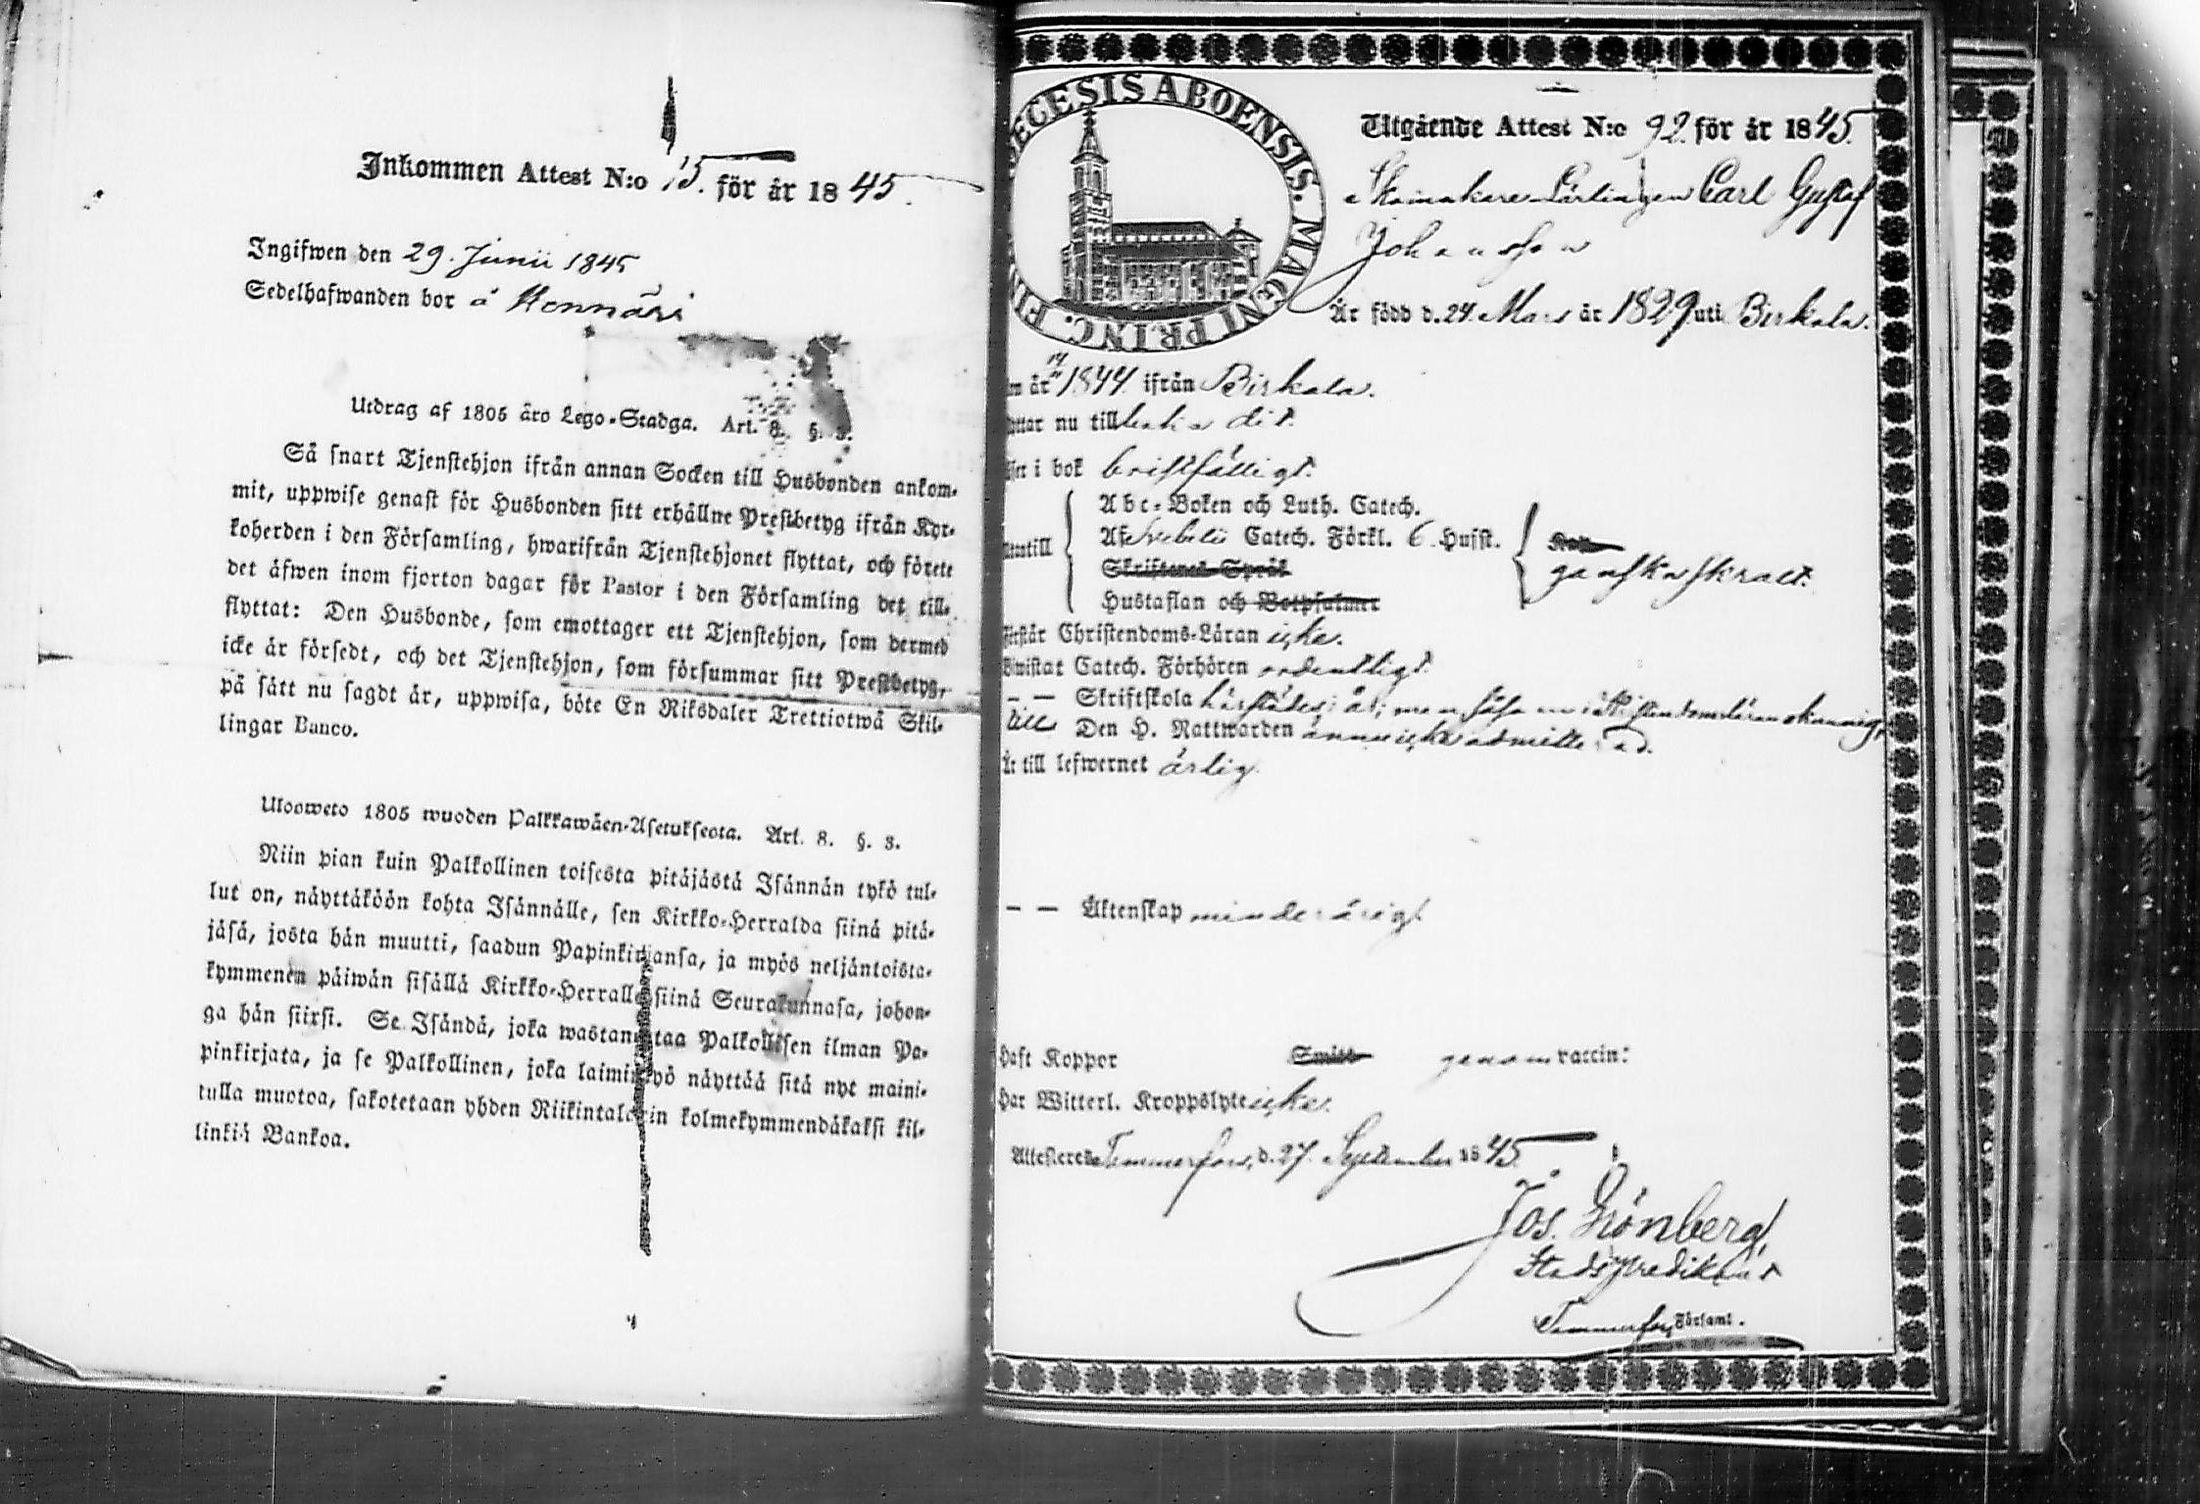 Inkommen Attest N:o 15. för år 1845.
Ingifwen den 29. Junii 1845
Sedelhafwanden bor å
Utdrag af 1805 åro Lego-Stadga. Art. 8. §. 3.
Så snart Tjenstehjon ifrån annan Socken till Husbonden ankom-
mit, uppwise genast för Husbonden sitt erhållne Prestbetyg ifrån Kyr-
koherden i den Församling, hwarifrån Tjenstehjonet flyttat, och förete
det äfwen inom fjorton dagar för Pastor i den Församling det till-
flyttat: Den Husbonde, som emottager ett Tjenstehjon, som dermed
icke är försedt, och det Tjenstehjon, som försummar sitt Prestbetyg,
på sätt nu sagdt är, uppwisa, böte En Riksdaler Trettiotwå Skil-
lingar Banco.
Ulooweto 1805 wuoden Palkkawäen-Asetuksesta. Art. 8. §. 3.
Niin pian kuin Palkollinen toisesta pitäjästä Isännän tykö tul-
lut on, näyttäköön kohta Isännälle, sen Kirkko-Herralda siinä pitä-
jäsä, josta hän muutti, saadun Papinkirjansa, ja myös neljäntoista-
kymmenen päiwän sisällä Kirkko-Herralle siinä Seurakunnasa, johon-
ga hän siirsi. Se Isändä, joka wastanottaa Palkollisen ilman Pa-
pinkirjata, ja se Palkollinen, joka laiminlyö näyttää sitä nyt maini-
tulla muotoa, sakotetaan yhden Riikintalarin kolmekymmendäkaksi kil-
linkiä Bankoa.
ECESIS ABOENSIS. MAGNI PRINC. FI
Utgående Attest N:o 92. för år 1845.
Skomakare Lärlingen Carl Gustaf
Johansson
Är född d. 24. Mars år 1829 uti Birkala.
år 1844 ifrån Birkala.
nu till dit.
i bok bristfälligt.
Abc-Boken och Luth. Catech.
Af Svebelii Catech. Förkl. 6. Hufst.
Skriftenes Språk
ganska skralt.
Hustaflan och Botpsalmer
Förstår Christendoms-Läran icke.
Biwistat Catech. Förhören ordentligt
— — Skriftskola härstädes i år; men
till Den H. Nattwarden ännu icke admitterad.
Är till lefwernet ärlig.
— — Äktenskap minderårig.
Haft Koppor genom vaccin:
Har Witterl. Kroppslyte icke.
Attesteres Tammerfors, d. 27. September 1845.
Jos. Grönberg,
Stadspredikant
Tammerfors Församl.